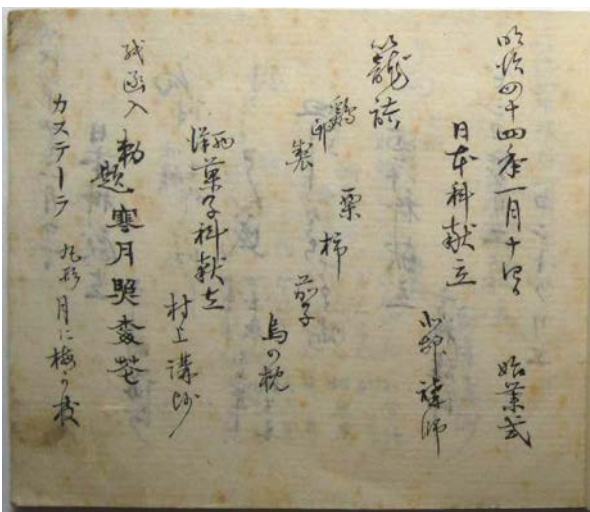 明治四十四年一月十四日 始業式
日本料献立
講師
籠詰
鶏卵製 栗 柿
西洋菓子科献立
村上講師
紙函入 勅題寒月照梅花
カステーラ 丸形 月に梅の枝